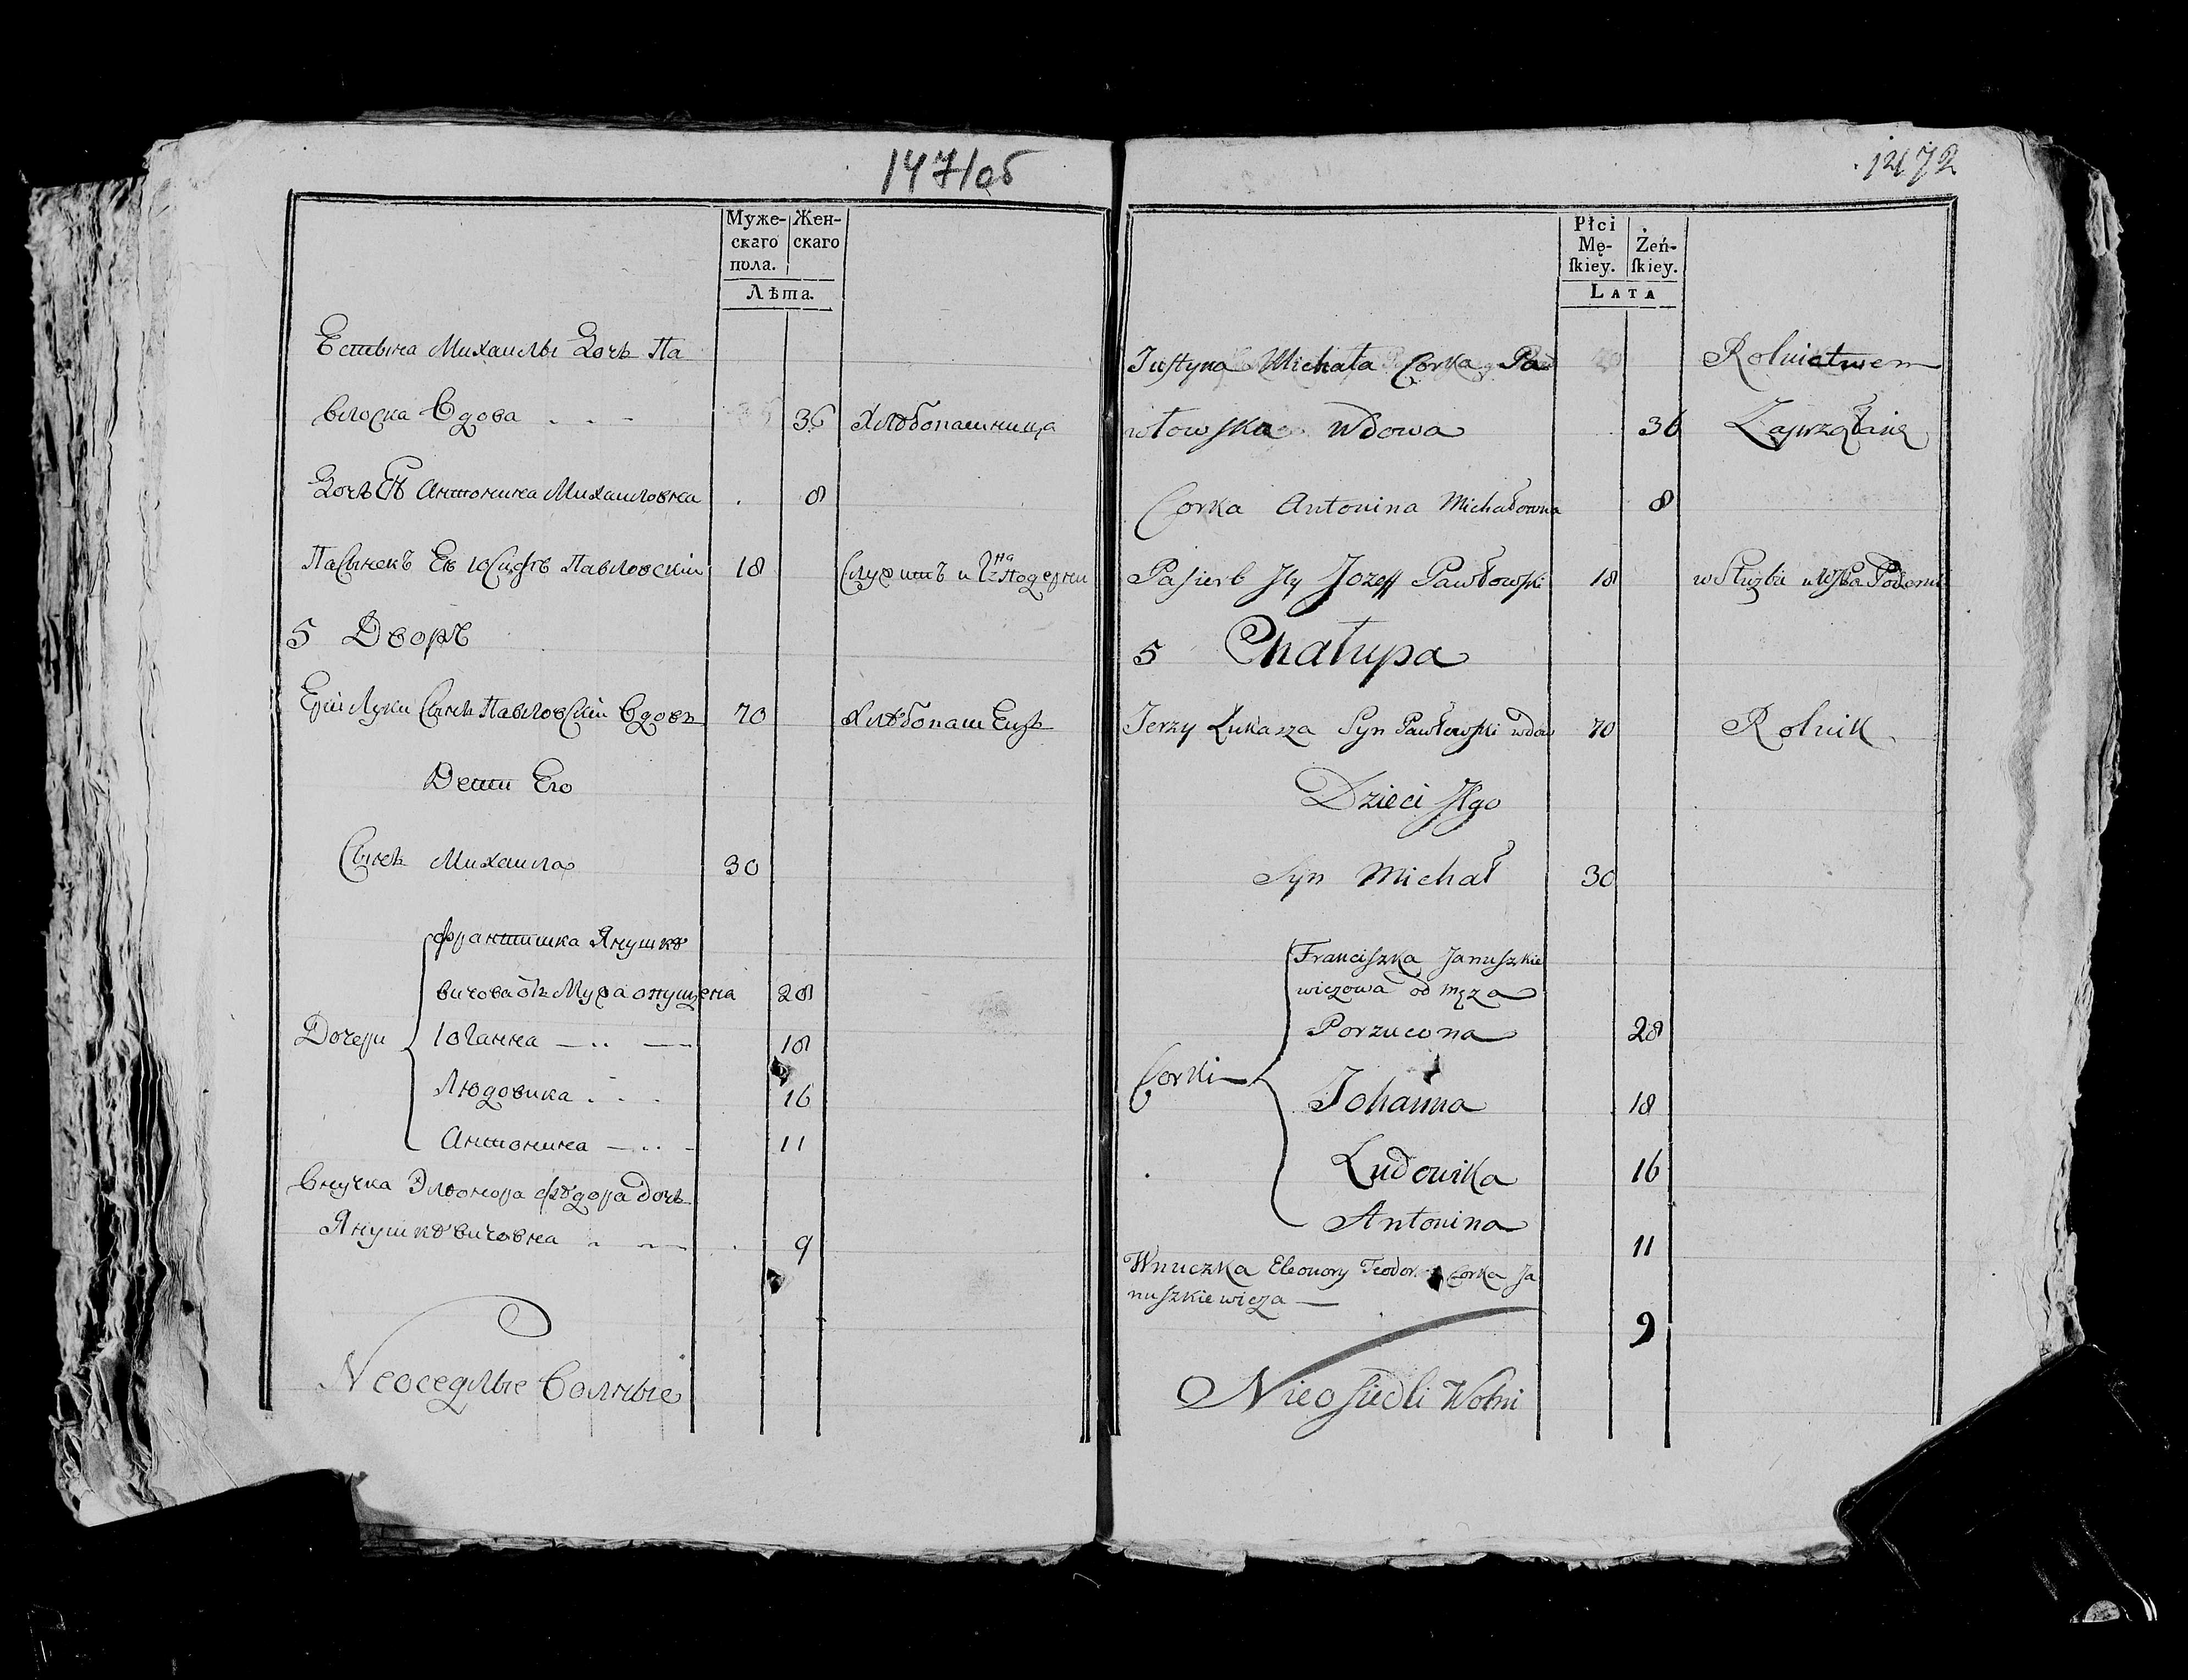 1471об
Муже- Жен-
скаго скаго
пола.
Лѣта.
Естына Михаилы Дочь Па
влоска Вдова . . - 36 Хлѣбопашница
Дочь Еѣ Антонина Михаиловна . 8
Пасынокъ Ев Юсифъ Павловскіи 18 Служитъ и Гна Подерни
5 Дворъ
Ерїи Луки Сынъ Павловскїи Вдовъ 70 Хлѣбопашецъ
Дети Его
Сынъ Михаила 30
Франтишка Янушкѣ
вичова отъ Мужа опущена 28
Дочери Юганна — .. — 18
Людовика . - . 16
Антонина — .. - 11
Внучка Элѣонора Фѣдора Дочь
Янушкѣвичовна - — . 9
Nеоседлые Волные
1472
Płci
Mę- Żeń-
ſkiey. ſkiey.
LATA
Juſtyna Michała Corka Paw Rolnictwem
włowſka wdowa 36 Zaprzątanę
Corka Antonina Michałowna 8
Paſierb Jey Jozeff Pawłowſki 18 w Służbie u
5 Chałupa
Jerzy Łukasza Syn Pawłowſki wdow 70 Rolnik
Dzieci Jego
Syn Michał 30
Franciſzka Januſzkie
wiczowa od męza
Porzucona 28
Corki Johanna 18
Ludowika 16
Antonina
11
Wnuczka Eleonory Teodor Corka Ja
nuſzkiewicza —
9
Nieoſiedli Wolni